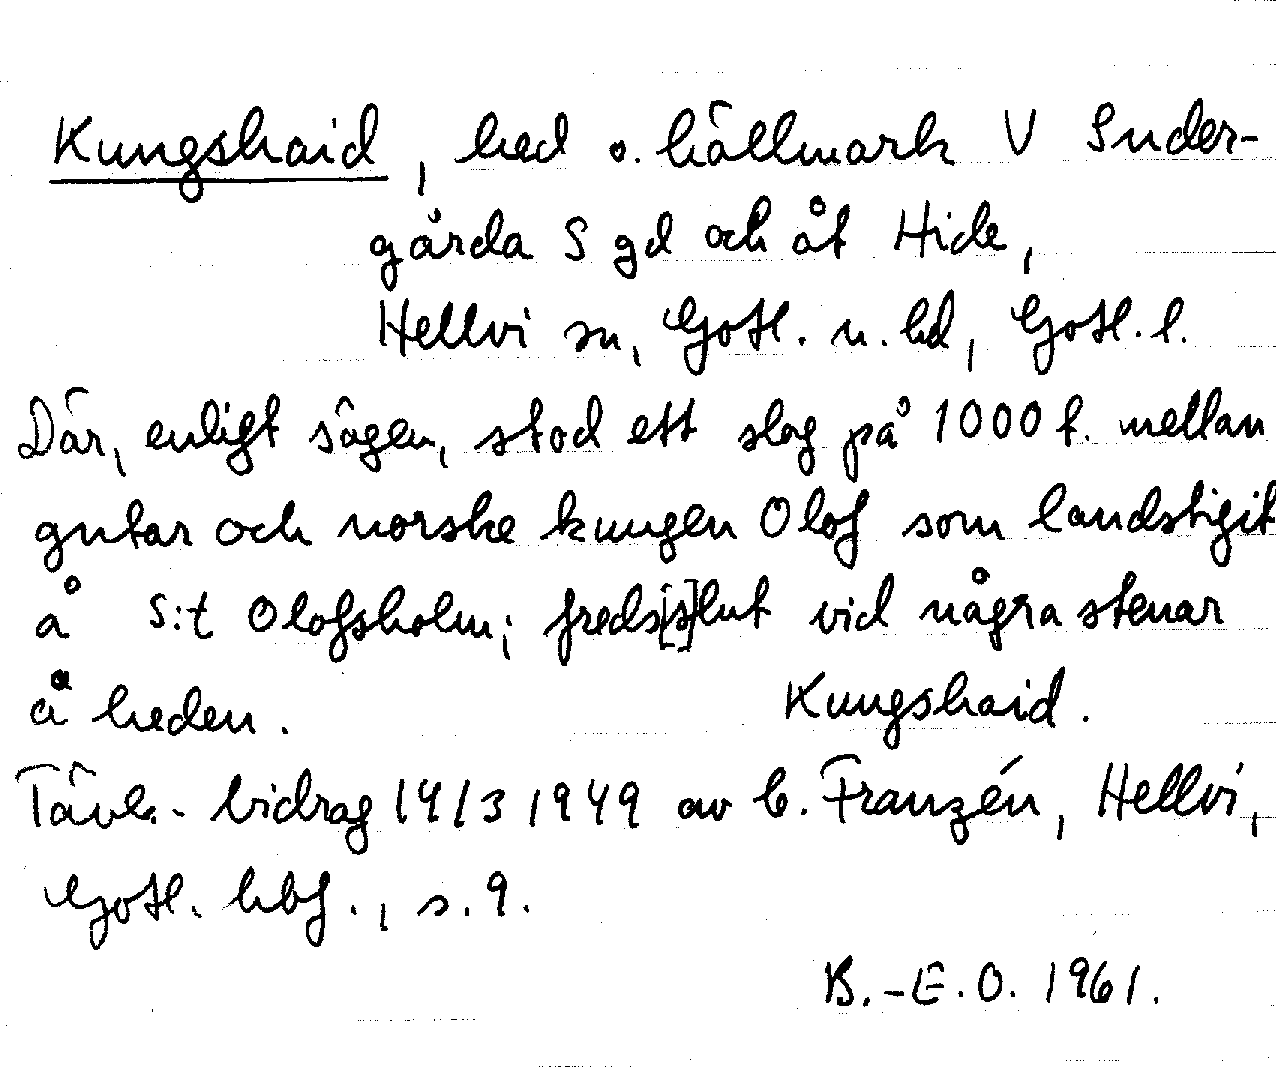 Kungshaid, hed o. hällmark V Suder-
gårda S gd och åt Hide,
Hellvi sn, Gotl. n. hd, Gotl. l.
Där, enligt sägen, stod ett slag på 1000 t. mellan
gutar och norske kungen Olof som landstigit
å S:t Olofsholm; freds[s]lut vid några stenar
å heden. Kungshaid.
Tävl.- bidrag 14/3 1949 av C. Franzén, Hellvi,
Gotl. hbf., s. 9.
B.-E.O. 1961.